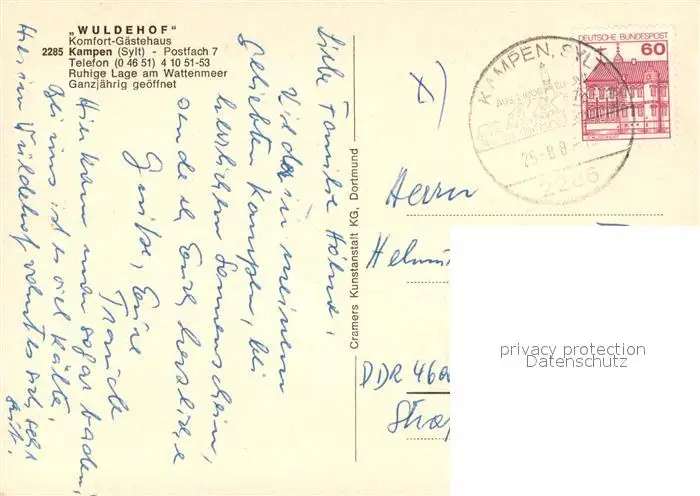 „WULDEHOF"
Komfort-Gästehaus
2285 Kampen (Sylt) - Postfach 7
Telefon (0 46 51) 4 10 51-53
Ruhige Lage am Wattenmeer
Ganzjährig geöffnet
Liebe Familie Höhne,
in meinem
geliebten Kampen, bei
herrlichem Sonnenschein,
sende ich Euch herzliche
Grüße, Eure
Traude
Hier kann man sogar baden,
bei uns ist es viel kälter,
Hier im Wuldehof wohnt es sich sehr
gut.
Cramers Kunstanstalt KG, Dortmund
DEUTSCHE BUNDESPOST
60
KAMPEN, SYLT
2286
Herrn
DDR 460
privacy protection
Datenschutz